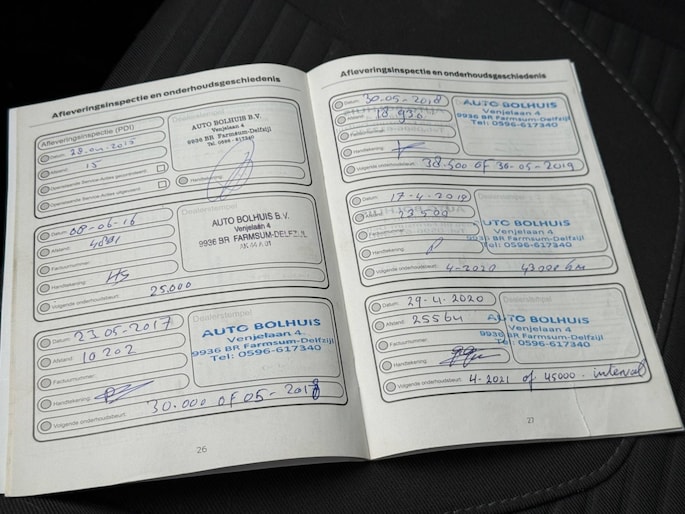 Afleveringsinspectie en onderhoudsgeschiedenis
Afleveringsinspectie (PDI)
Datum: 28-04-2015
Afstand: 15
Openstaande Service Acties
Openstaande Service Acties uitgevoerd
Dealerstempel
AUTO BOLHUIS B.V.
Venjelaan 4
9936 BR Farmsum-Delfzijl
Tel. 0596 - 617340
Handtekening:
Datum: 08-06-16
Afstand: 4891
Factuurnummer:
Handtekening: HS
Volgende onderhoudsbeurt: 25.000
Dealerstempel
AUTO BOLHUIS B.V.
Venjelaan 4
9936 BR FARMSUM-DELFZIJL
Datum: 23-05-2017
Afstand: 10202
Factuurnummer:
Handtekening:
Volgende onderhoudsbeurt: 30.000 of 05-2018
Dealerstempel
AUTO BOLHUIS
Venjelaan 4
9936 BR Farmsum-Delfzijl
Tel: 0596-617340
26
Afleveringsinspectie en onderhoudsgeschiedenis
Datum: 30-05-2018
Afstand: 18.930
Factuurnummer:
Handtekening:
Volgende onderhoudsbeurt: 38.500 of 30-05-2019
AUTO BOLHUIS
Venjelaan 4
9936 BR Farmsum-Delfzijl
Tel: 0596-617340
Datum: 17-4-2019
Afstand: 23500
Factuurnummer:
Handtekening:
Volgende onderhoudsbeurt: 4-2020 43000 km
UTO BOLHUIS
Venjelaan 4
9936 BR Farmsum-Delfzijl
Tel: 0596-617340
Datum: 29-4-2020
Afstand: 25564
Factuurnummer:
Handtekening:
Volgende onderhoudsbeurt: 4-2021 of 45000 - interval
Dealerstempel
AUTO BOLHUIS
Venjelaan 4
9936 BR Farmsum-Delfzijl
Tel: 0596-617340
27